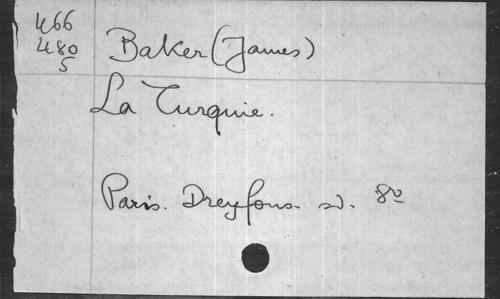 466
480
5
Baker (James)
La Turquie.
Paris. Dreyfous. sd. 8vo